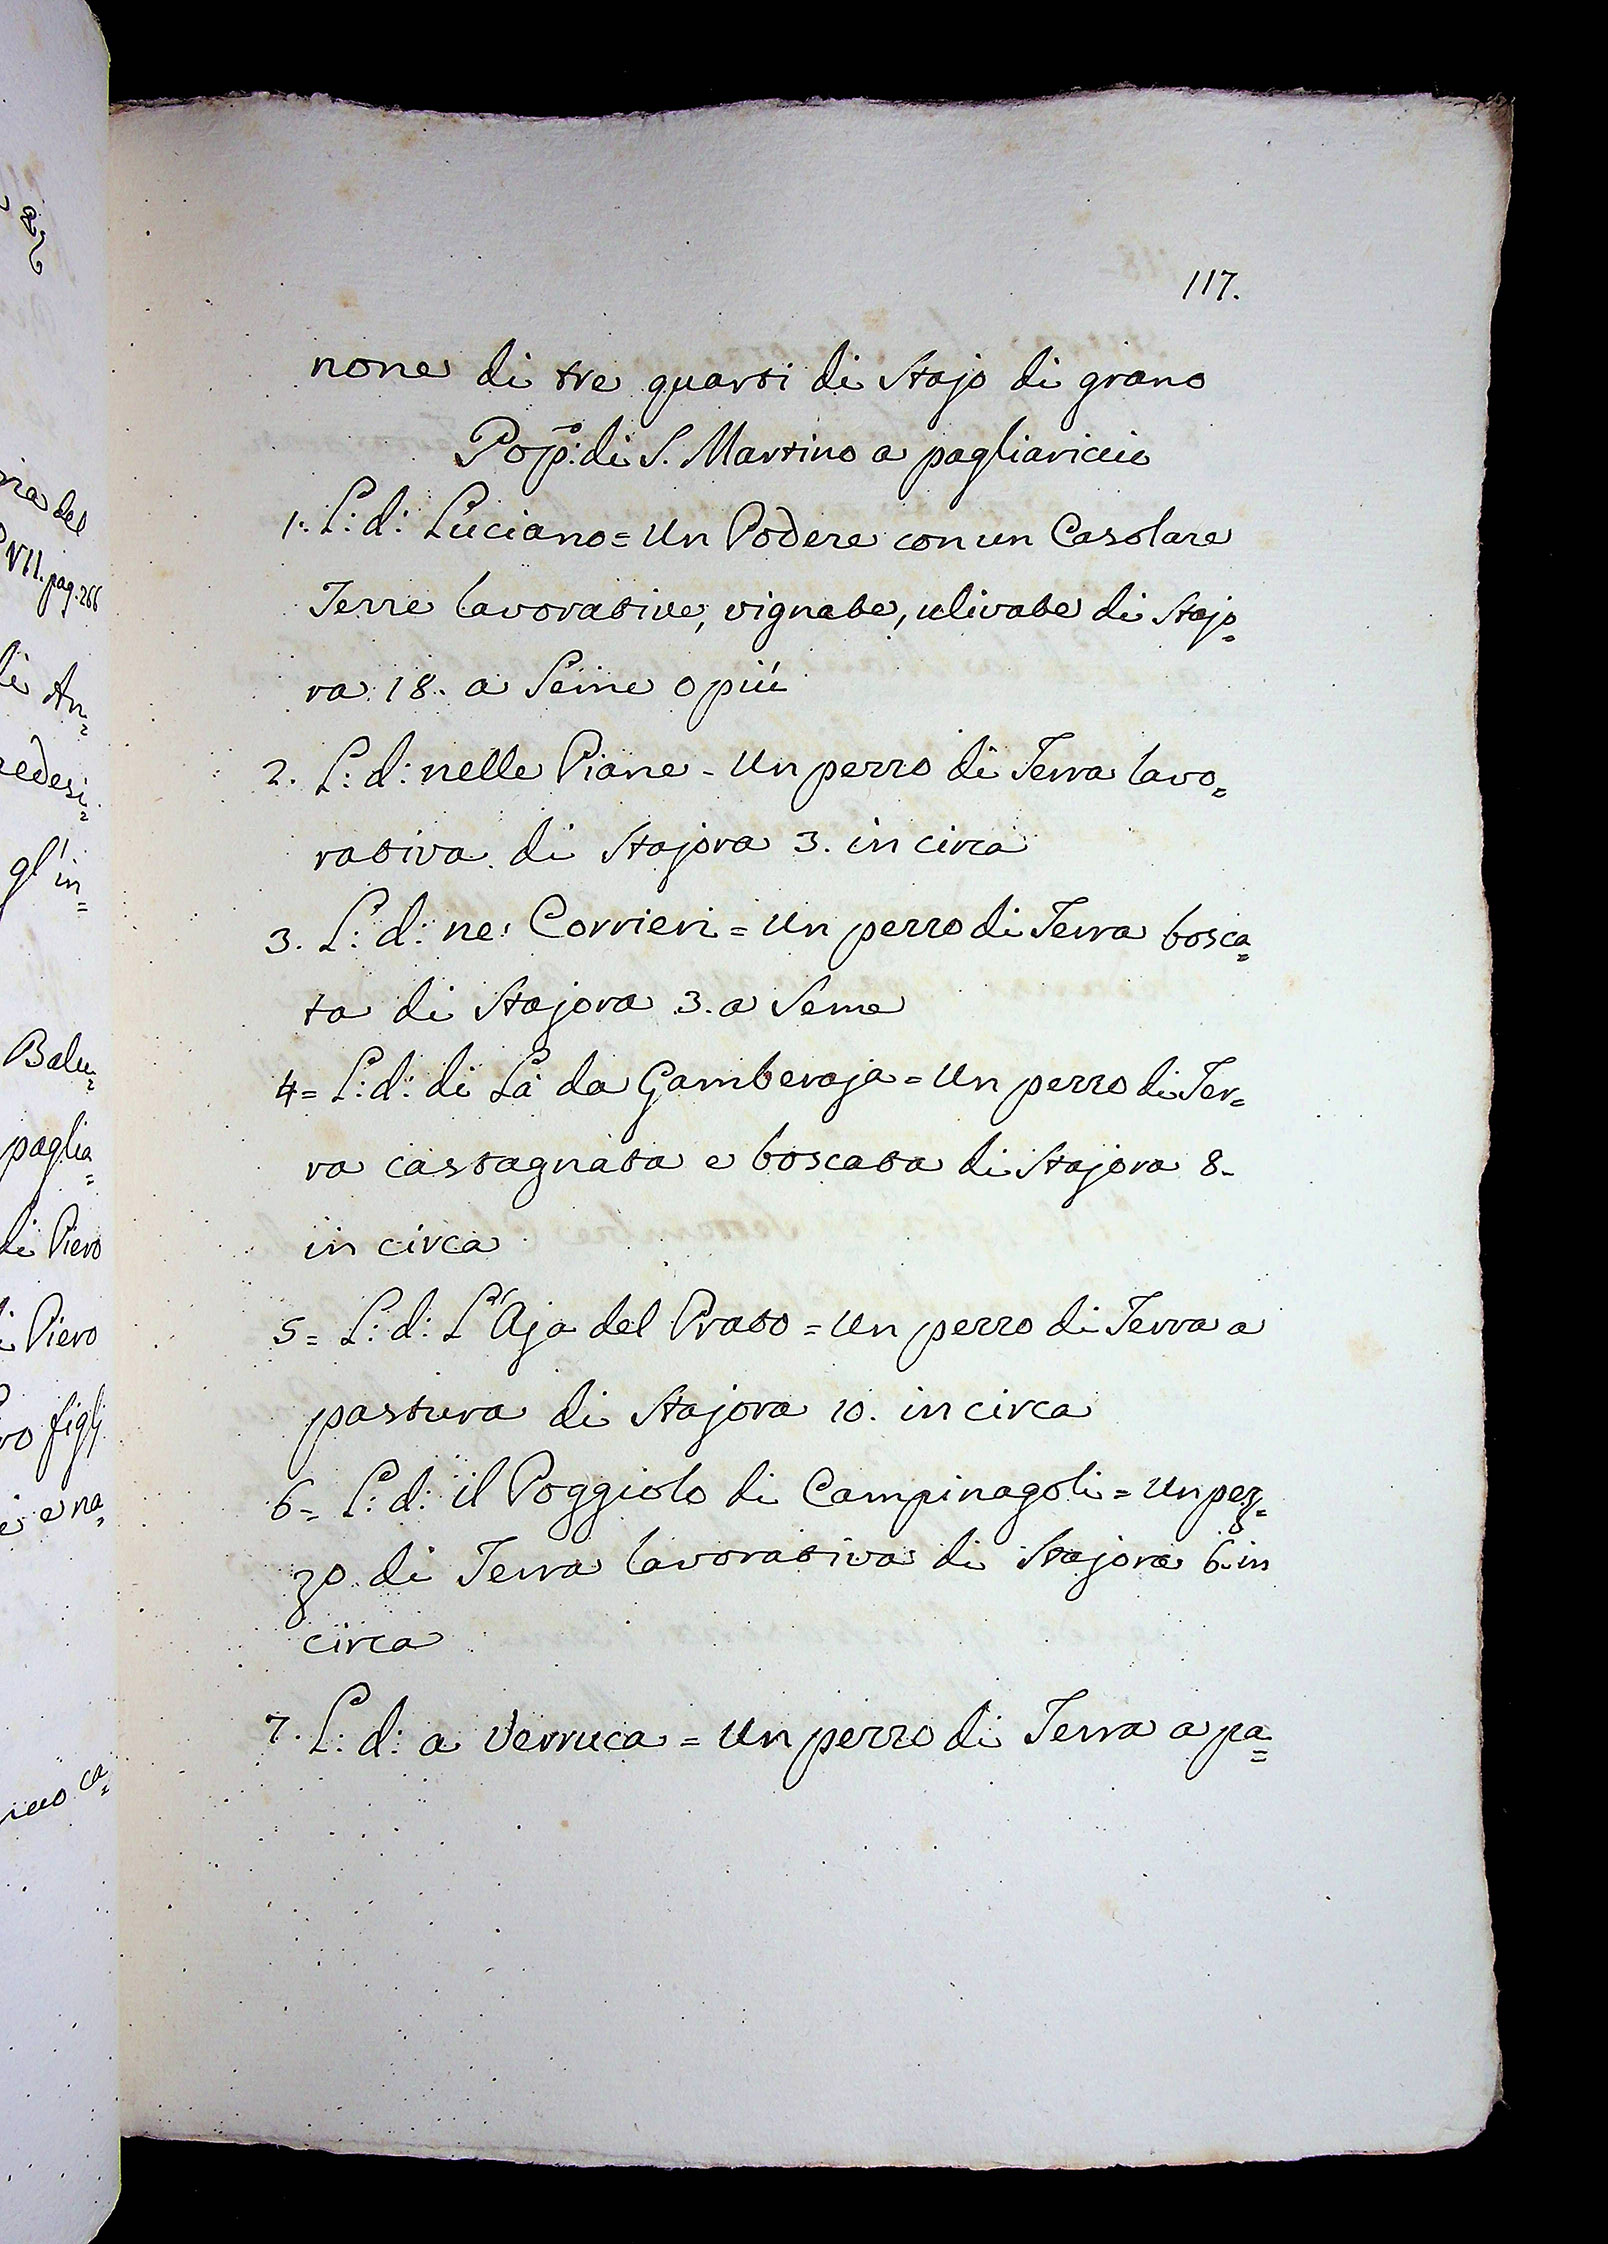 a &
ria del
VII. pag. 266
di An=
redesi=
gl'in=
Balu=
paglia=
di Piero
di Piero
ro figlj
e na=
ca=
117.
none di tre quarti di Stajo di grano
Pop:o di S. Martino a pagliariccio
1. L: d: Luciano = Un Podere con un Casolare
Terre lavorative, vignate, ulivate di Stajo=
ra 18. a Seme o più
2. L: d: nelle Piane - Un pezzo di Terra lavo=
rativa di Stajora 3. in circa
3. L: d: ne: Corrieri = Un pezzo di Terra bosca=
ta di Stajora 3. a Seme
4= L: d: di La da Gamberaja = Un pezzo di Ter=
ra castagnata e boscata di Stajora 8-
in circa
5= L: d: L'Aja del Prato = Un pezzo di Terra a
pastura di Stajora 10. in circa
6= L: d: il Poggiolo di Campinagoli = Un pez=
zo di Terra lavorativa di Stajora 6. in
circa
7. L: d: a Verruca = Un pezzo di Terra a pa=